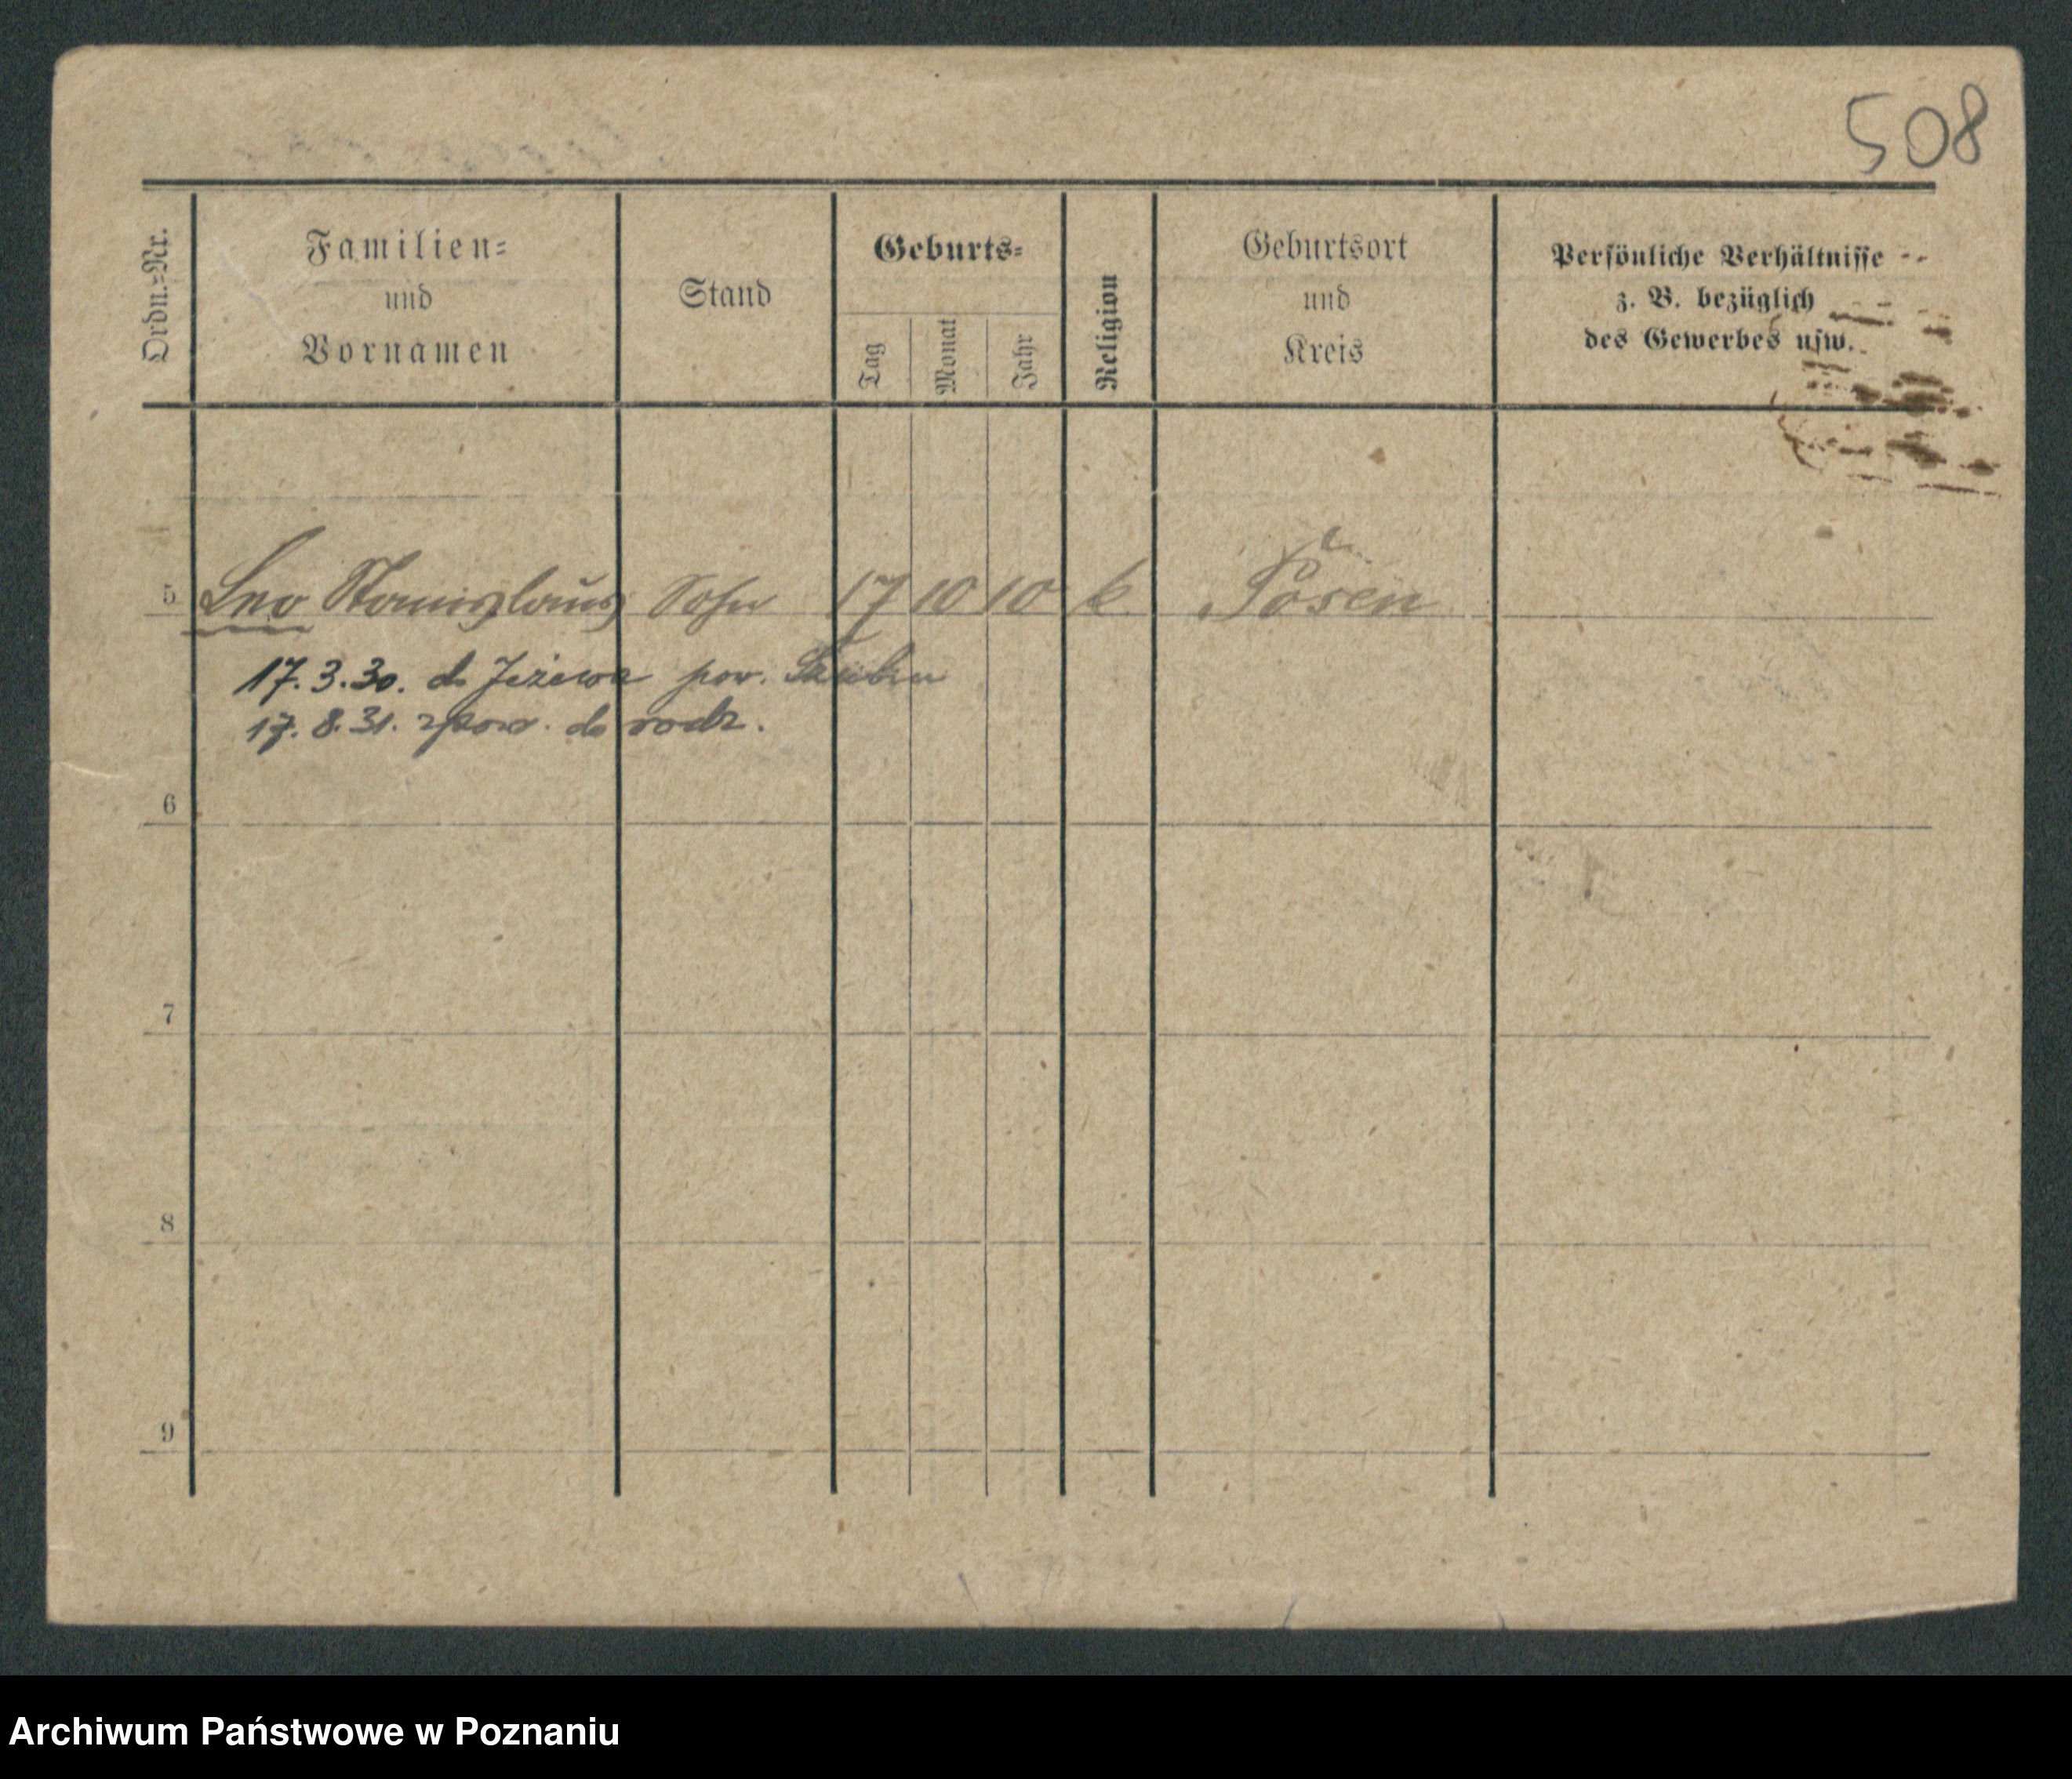 508
Ordn.-Nr.
Familien-
und
Vornamen
Stand
Geburts-
Tag
Monat
Jahr
Religion
Geburtsort
und
Kreis
Persönliche Verhältnisse
z. B. bezüglich
des Gewerbes usw.
5 Leo Stanislaus Sohn 17 10 10 k. Posen
17.3.30. do Jeżewa pow. Szubin
17.8.31. zpow. do rodz.
6
7
8
9
Archiwum Państwowe w Poznaniu